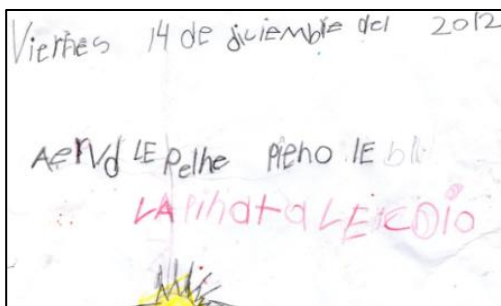 Viernes 14 de diciembre del 2012
AerVd LE Pelhe Pieno LE bli
LA Piñata LE ICDIO